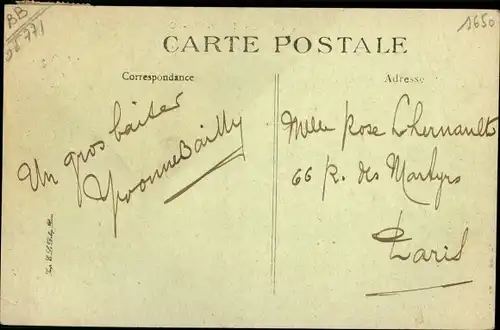 BB
1650
CARTE POSTALE
Correspondance
Adresse
Un gros baiser
Yvonne Bailly
Melle Rose Lhernault
66 R. des Martyrs
Paris